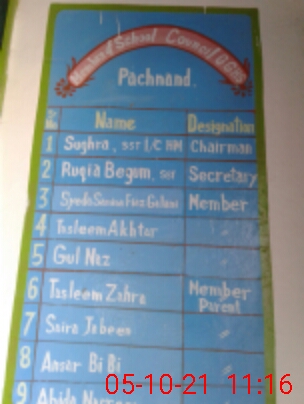 Member of School Council GGPS
Pachnand.
Sr No Name Designation
1 Sughra, SST I/C HM Chairman
2 Ruqia Begum, SST Secretary
3 Syeda Samina Faiz Gillani Member
4 Tasleem Akhtar "
5 Gul Naz "
6 Tasleem Zahra Member Parent
7 Saira Jabeen "
8 Ansar Bi Bi "
9 Abida
05-10-21 11:16